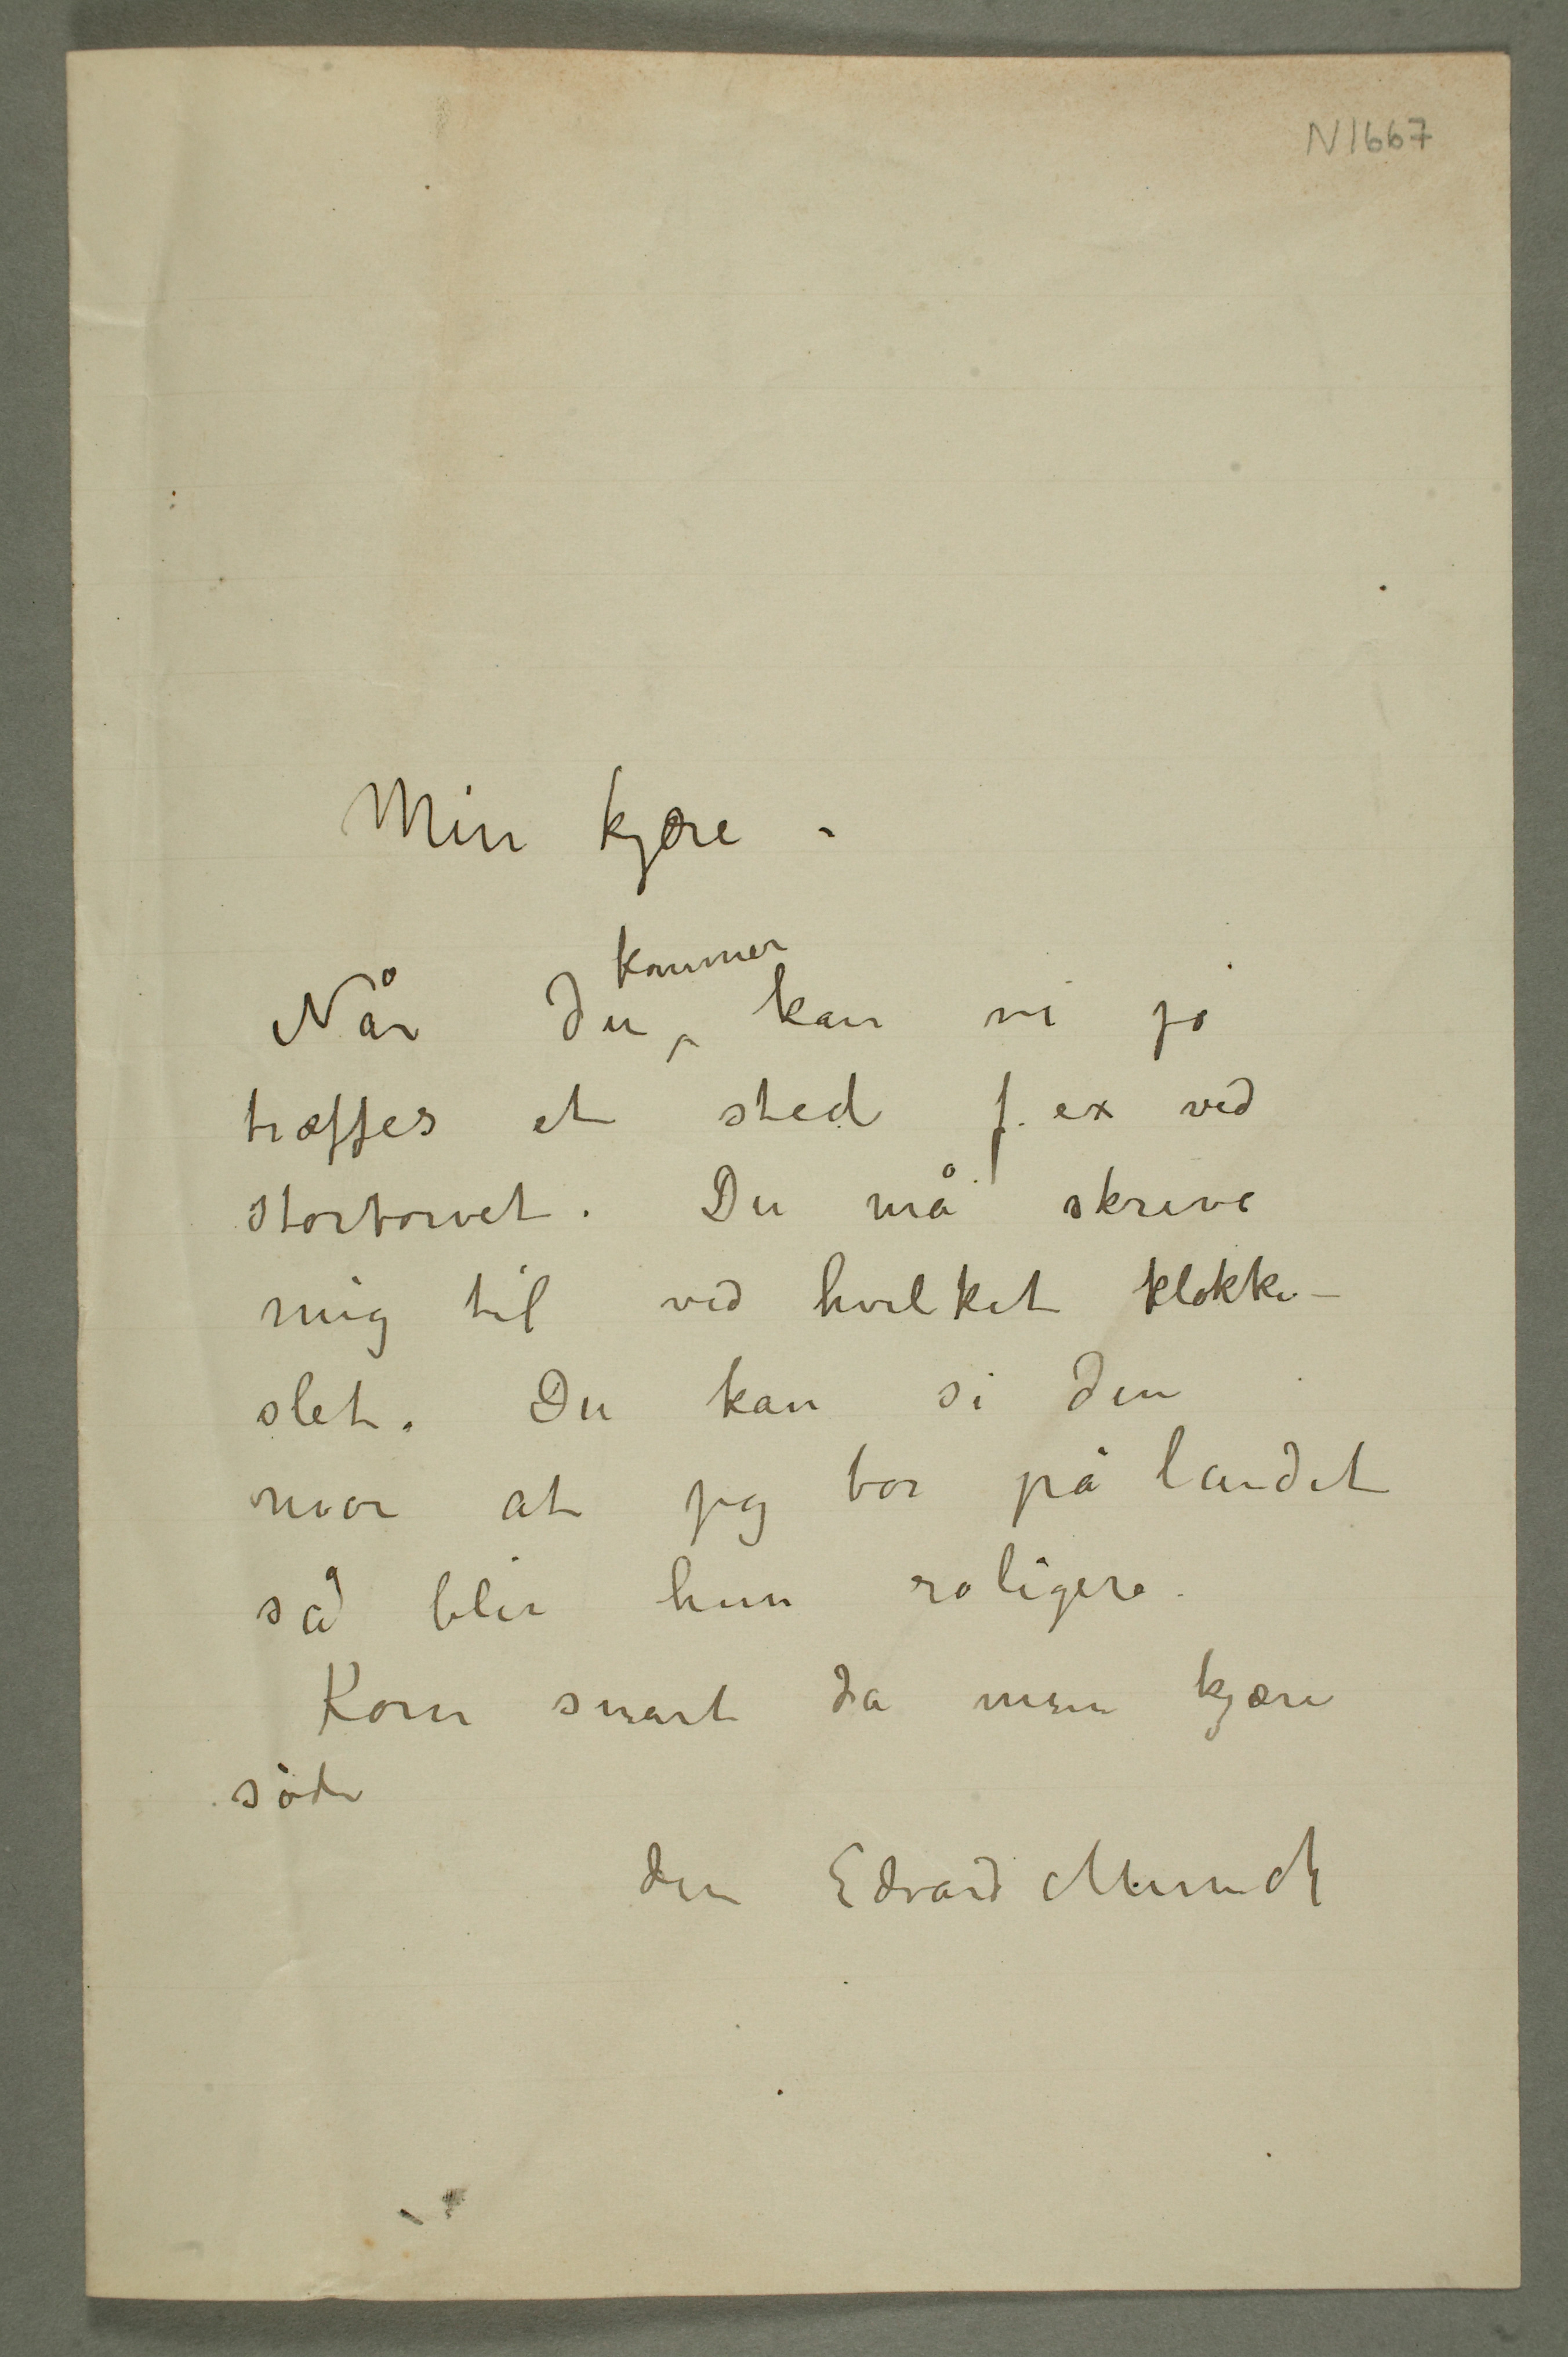 N1667
Min kjære.
Når du kommer kan vi jo
træffes et sted f. ex ved
stortorvet. Du må skrive
mig til ved hvilket klokke–
slet. Du kan si din
mor at jeg bor på landet
så blir hun roligere.
Kom snart da min kjære
søde
din Edvard Munch